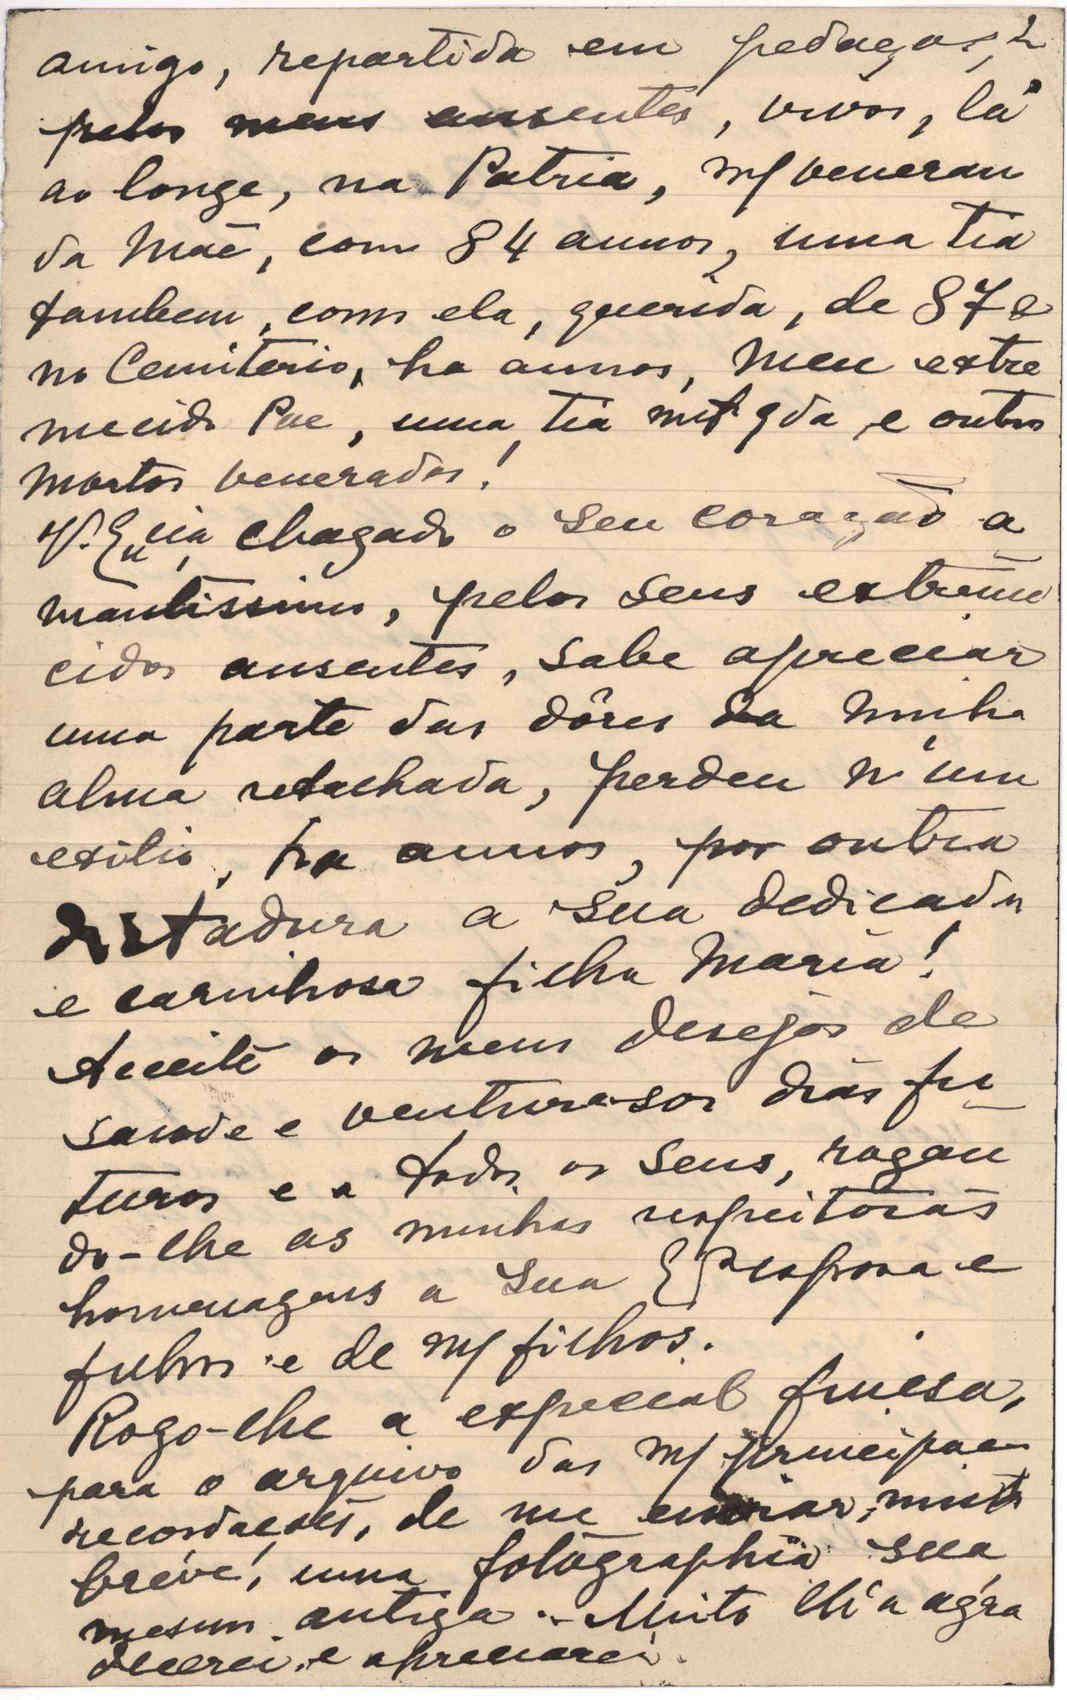 amigo, repartida em pedaços, 2
pelos meus ausentes, vivos, lá
ao longe, na Patria, mf veneran
da Mãe, com 84 annos, uma tia
tambem, com ela, querida, de 87 e
no Cemiterio, ha annos, Meu extre
mecido Pae, uma tia mtº qda, e outros
Mortos venerados!
V. Excia, chagado o seu coração a
mantissimo, pelos seus extreme
cidos ausentes, sabe apreciar
uma parte das dôres da minha
alma retalhada, perdeu n'um
exilio, ha annos, por outra
dictadura a sua dedicada
e carinhosa filha Maria!
Acceite os meus desejos de
saude e venturosos dias fu
turos e a todos os seus, rogan
do-lhe as minhas respeitosas
homenagens a Sua Exma esposa e
filhos e de mf filhos.
Rogo-lhe a especial fineza,
para o arquivo das mf principaes
recordações, de me enviar, muito
breve, uma fotographia sua
mesmo antiga. - Muito lh'a agra
decerei e apreciarei.